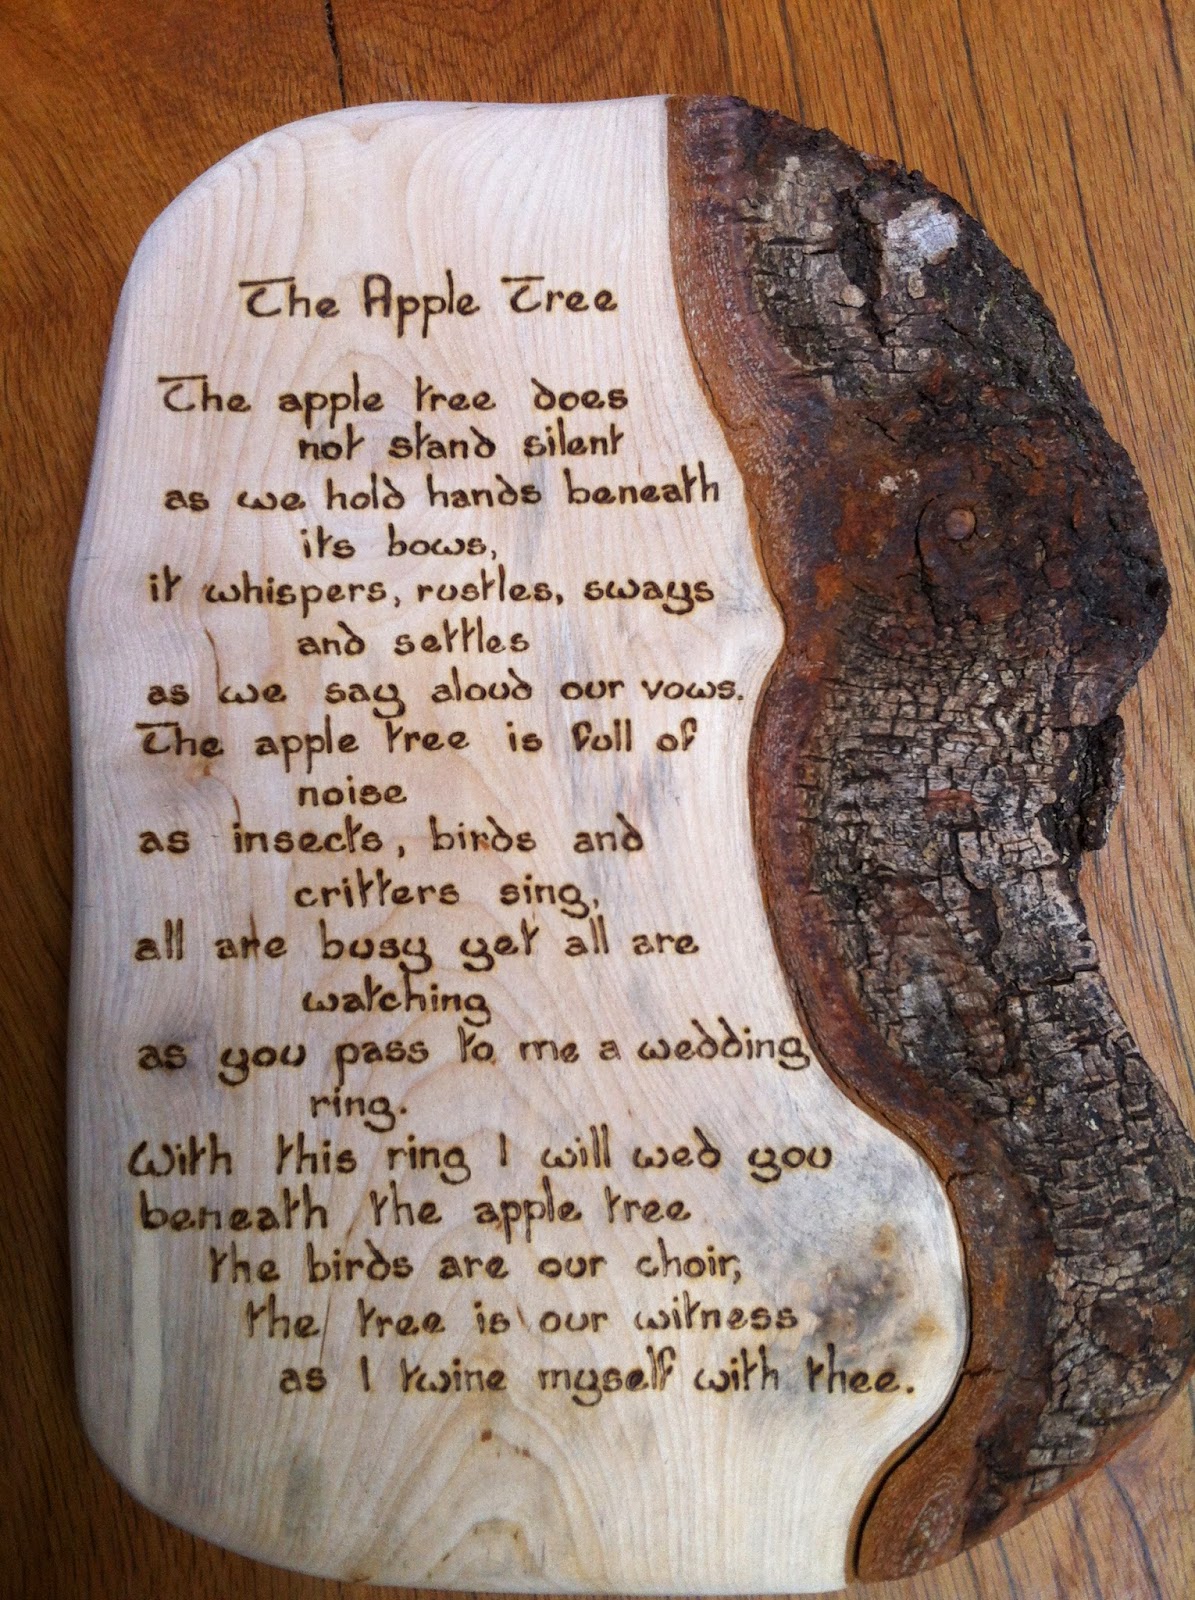 The Apple Tree
The apple tree does
not stand silent
as we hold hands beneath
its bows,
it whispers, rustles, sways
and settles
as we say aloud our vows.
The apple tree is full of
noise
as insects, birds and
critters sing,
all are busy yet all are
watching
as you pass to me a wedding
ring.
With this ring I will wed you
beneath the apple tree
the birds are our choir,
the tree is our witness
as I twine myself with thee.